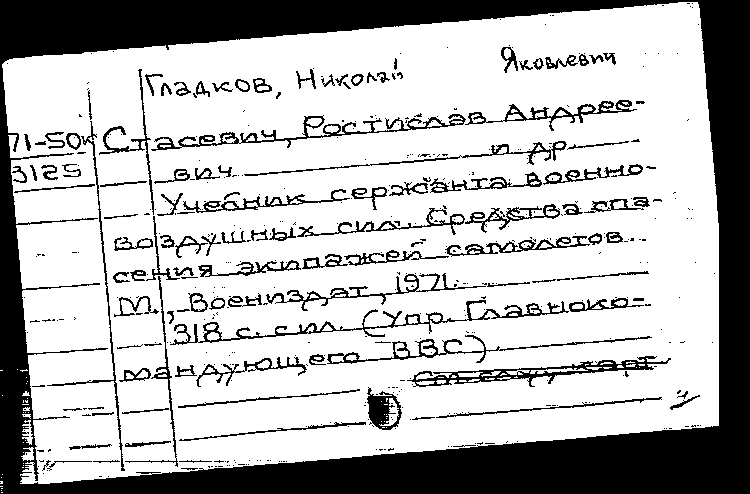 Гладков, Николай Яковлевич
71-50к Стасевич, Ростислав Андрее-
3125 вич и др.
Учебник сержанта военно-
воздушных сил. Средства спа-
сения экипажей самолетов.
М., Воениздат, 1971.
318 с. с ил. (Упр. Главноко-
мандующего ВВС).
См. след. карт